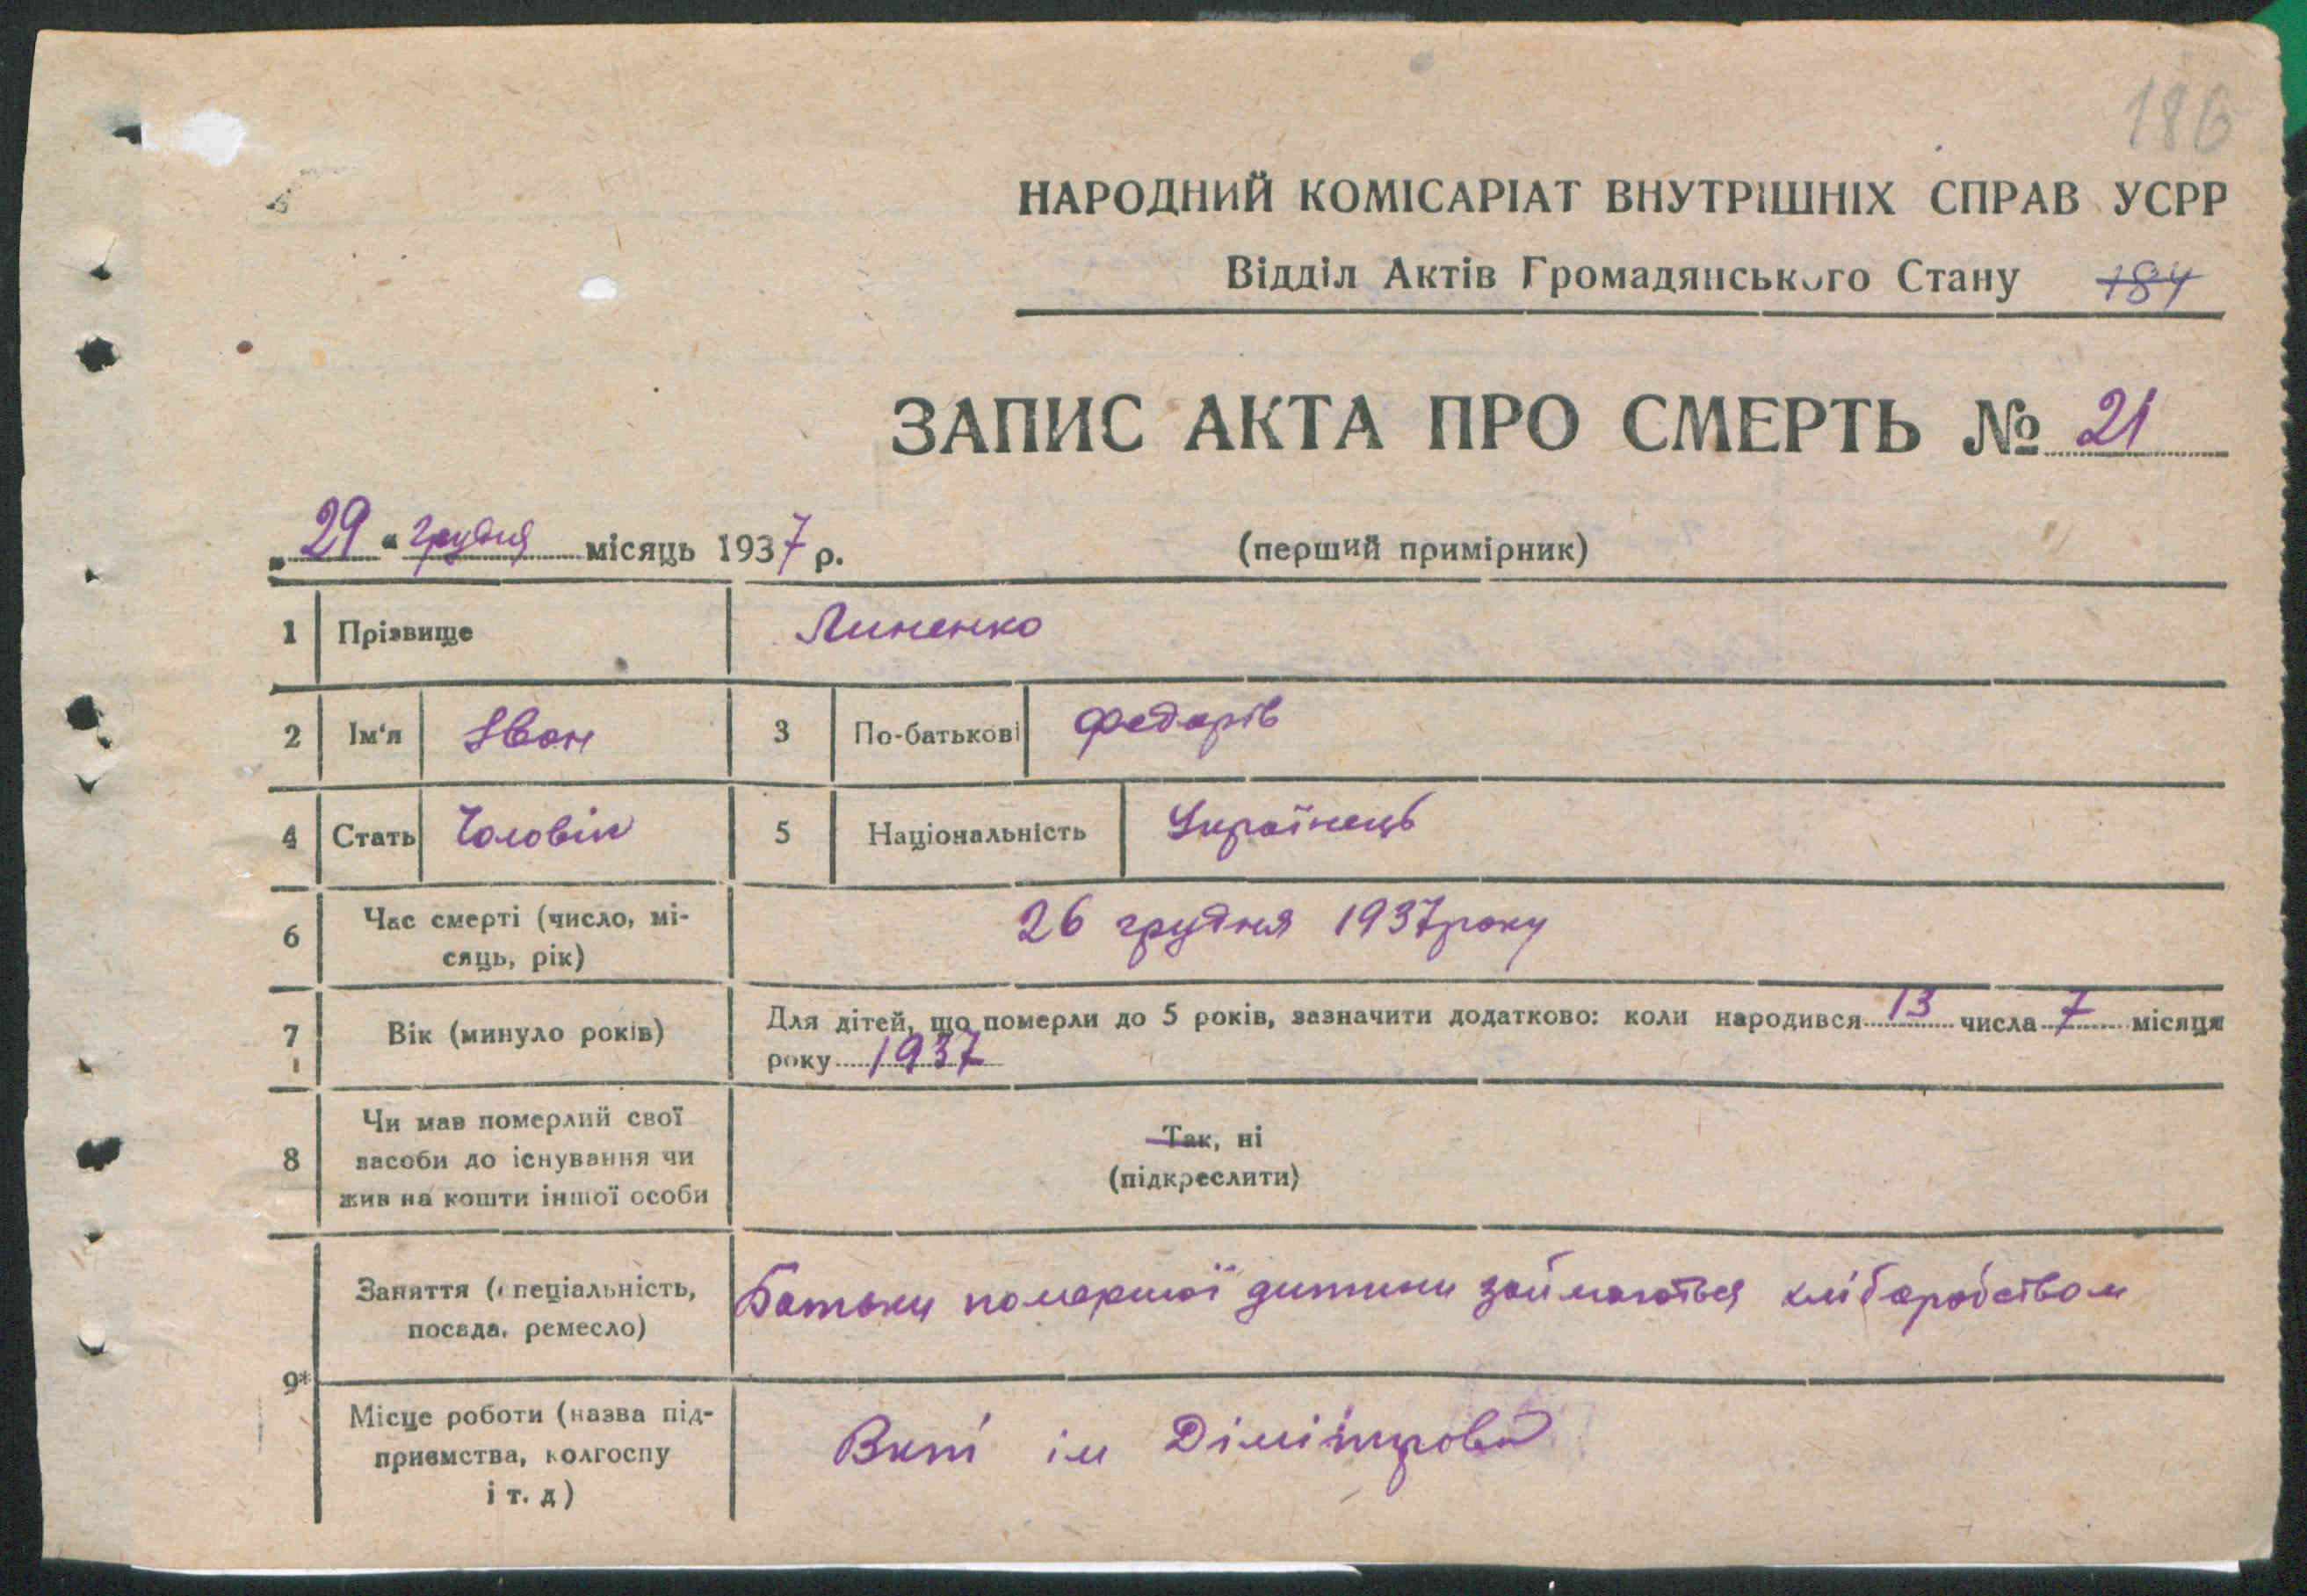 186
НАРОДНИЙ КОМІСАРІАТ ВНУТРІШНІХ СПРАВ УСРР
Відділ Актів Громадянського Стану 184
ЗАПИС АКТА ПРО СМЕРТЬ № 21
„29“ грудня місяць 1937 р. (перший примірник)
1 Прізвище Линенко
2 Ім'я Іван 3 По-батькові Федорів
4 Стать Чоловік 5 Національність Українець
6 Час смерті (число, мі-
сяць, рік) 26 грудня 1937 року
7 Вік (минуло років) Для дітей, що померли до 5 років, зазначити додатково: коли народився 13 числа 7 місяця
року 1937
8 Чи мав померлий свої
засоби до існування чи
жив на кошти іншої особи
Так, ні
(підкреслити)
9* Заняття (спеціальність,
посада, ремесло) Батьки помершої дитини займаються хліборобством
Місце роботи (назва під-
приємства, колгоспу
і т. д) ім Дімітрова